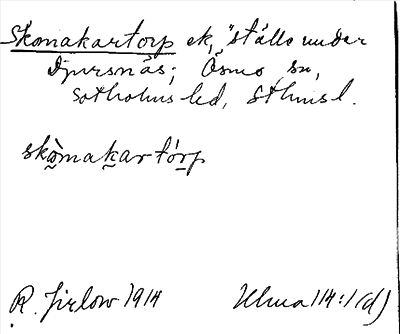 Skomakartorp ek, "ställe under
Djursnäs; Ösmo sn,
Sotholms hd, Sthmsl.
skòmakartórp
R. Jirlow 1914
Ulma 114:1 (d)